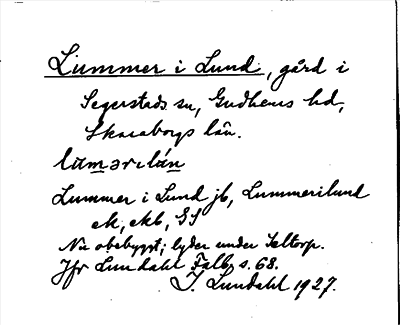 Lummer i Lund, gård i
Segerstads sn, Gudhems hd,
Skaraborgs län.
lumərɩlún
Lummer i Lund jb, Lummerilund
ek, ekb, GS
Nu obebyggt; lyder under Seltorp.
Jfr Lundahl Falb. s. 68.
I. Lundahl 1927.